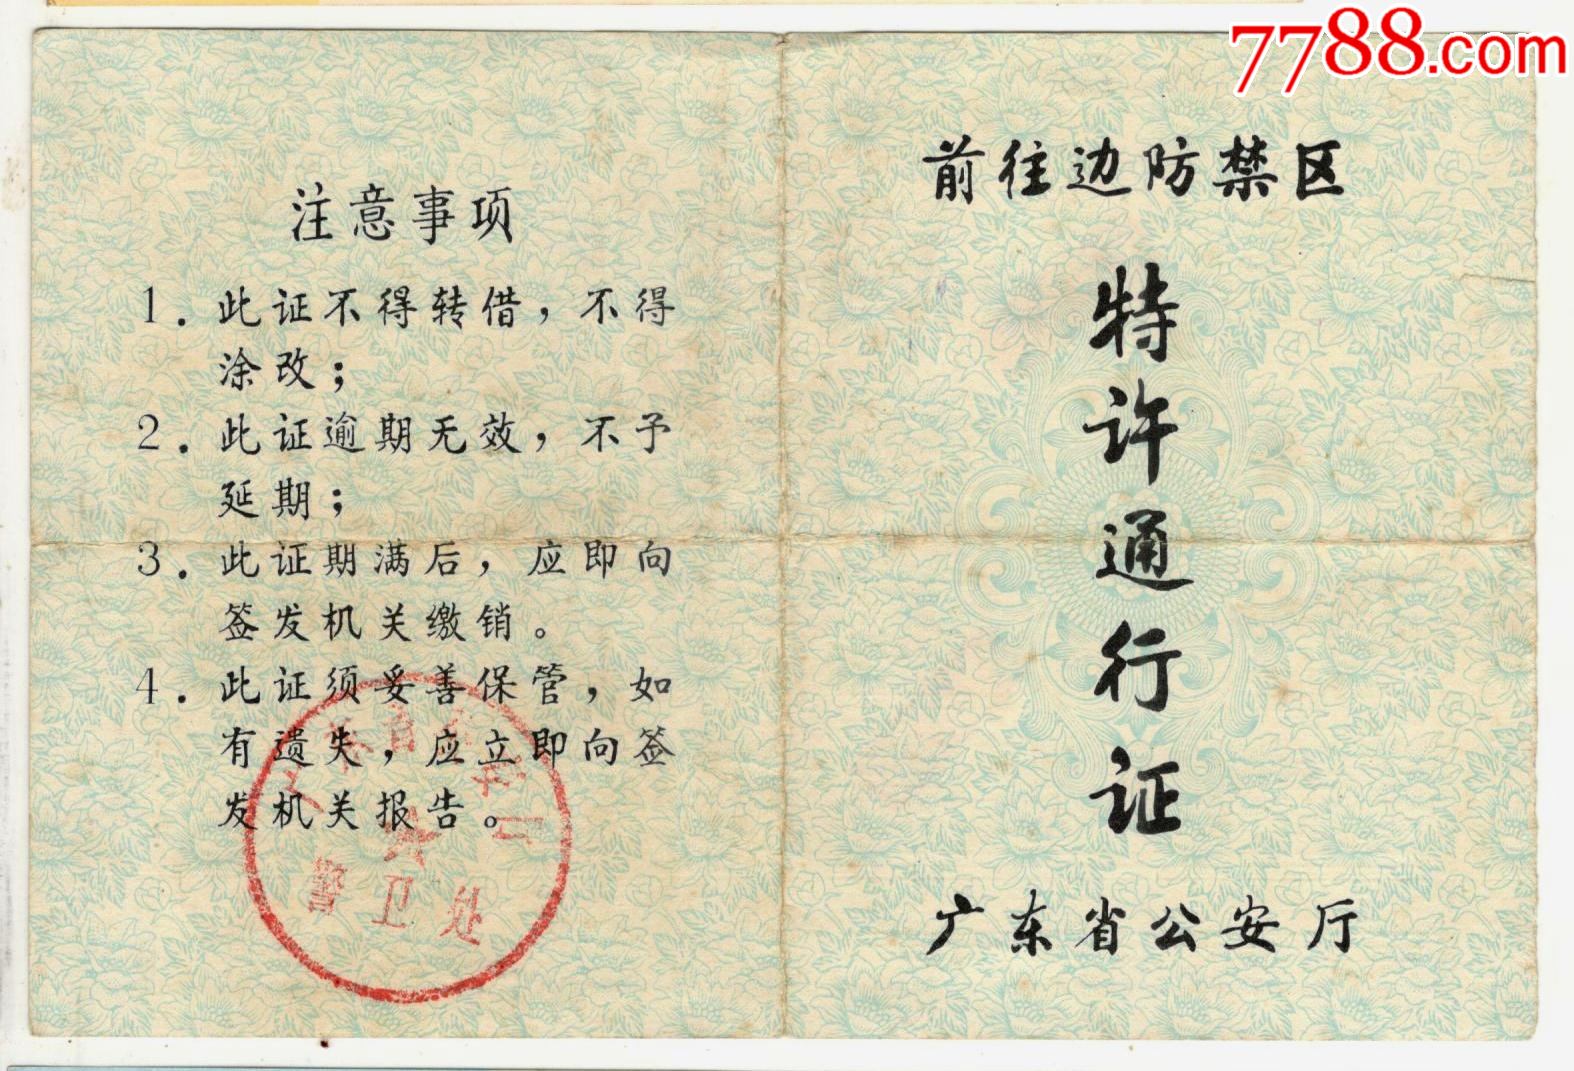 7788.com
注意事项
1. 此证不得转借，不得
涂改；
2. 此证逾期无效，不予
延期；
3. 此证期满后，应即向
签发机关缴销。
4. 此证须妥善保管，如
有遗失，应立即向签
发机关报告。
警卫处
前往边防禁区
特许通行证
广东省公安厅